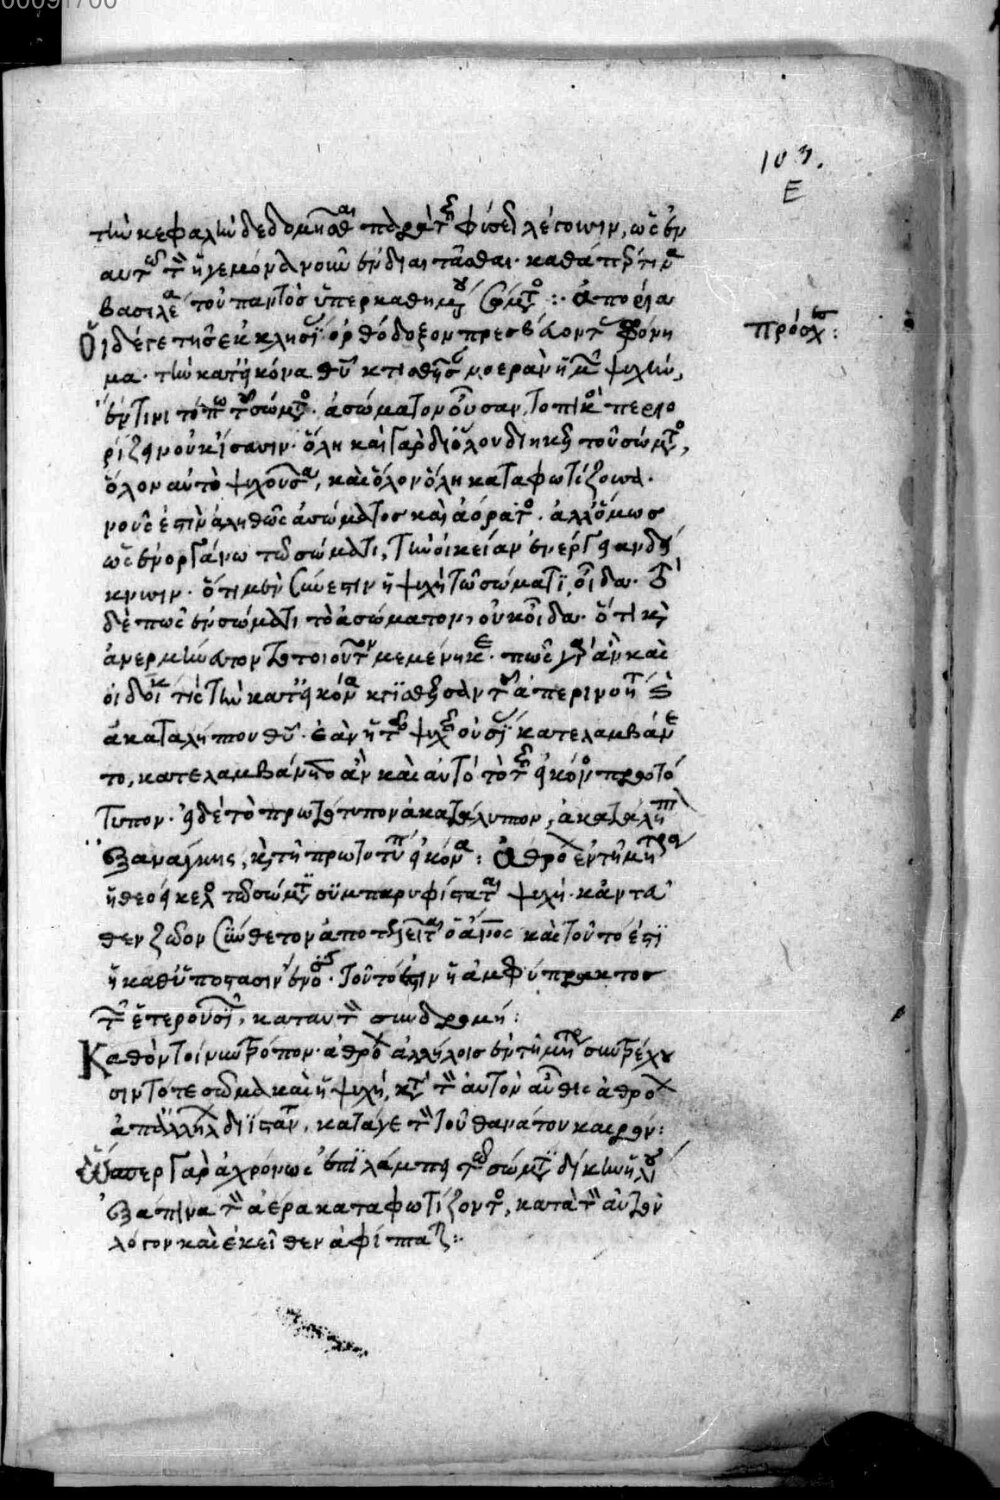 00091700
103.
Ε
τὴν κεφαλὴν δεδομῆσθαι παρὰ τῆς φύσεως λέγουσιν, ὡς ἐν
αὐτῷ τὸν ἡγεμόνα νοῦν ἐνδιαιτᾶσθαι. καθάπερ τινὰ
βασιλέα τοῦ παντὸς ὑπερκαθημένου σώματος :· ἀπορία
πρόσχες :
Οἶδέ γε τῆς ἐκκλησίας ὀρθόδοξον πρεσβεύοντες φρόνη
μα. τὴν κατ' εἰκόνα θεοῦ κτισθεῖσαν νοερὰν ἡμῶν ψυχὴν,
ἔν τινι τόπῳ τοῦ σώματος. ἀσώματον οὖσαν, τοπικῶς περιο
ρίζειν οὐκ εἴασαν. ὅλη καὶ γὰρ δι' ὅλου διήκει τοῦ σώματος,
ὅλον αὐτὸ ψυχοῦσα, καὶ ὅλον ὅλη καταφωτίζουσα.
νοῦς ἐστὶν ἀληθῶς ἀσώματος καὶ ἀόρατος. ἀλλ' ὅμως
ὡς ἐν ὀργάνω τῶ σώματι, τὴν οἰκείαν ἐνέργειαν δεί
κνυσιν. ὅτι μὲν σύνεστιν ἡ ψυχὴ τῶ σώματι, οἶδα. τὸ
δὲ πῶς ἐν σώματι τὸ ἀσώματον, οὐκ οἶδα. ὅτι καὶ
ἀνερμήνευτον τὸ τοιοῦτον μεμένηκε. πῶς γὰρ ἂν καὶ
εἰδείη τίς τὴν κατ' εἰκόνα κτισθεῖσαν τοῦ ἀπερινοήτου καὶ
ἀκαταλήπτου θεοῦ. ἐὰν ἡ τῆς ψυχῆς οὐσία κατελαμβάνε
το, κατελαμβάνετο ἂν καὶ αὐτὸ τὸ τῆς εἰκόνος πρωτό
τυπον. εἰ δὲ τὸ πρωτότυπον ἀκατάληπτον, ἀκατάληπτος
ἐξανάγκης, καὶ ἡ τοῦ πρωτοτύπου εἰκόνα : Ἀθρόον ἐν τῆ μήτρα
ἡ θεοείκελος τῶ σώματι συμπαρυφίσταται ψυχή. κἀντεῦ
θεν ζῶον σύνθετον ἀποτελεῖται ὁ ἄνθρωπος καὶ τοῦτό ἐστι
ἡ καθ' ὑπόστασιν ἕνωσις. τοῦτό ἐστιν ἡ ἀμφύπρακτος
τῶν ἑτεροουσίων, κατ' αὐτὸν συνδρομή :
Καθ' ὃν τοίνυν τρόπον. ἀθρόον ἀλλήλοις ἐν τῆ μήτρα συντρέχου
σιν τότε σῶμα καὶ ἡ ψυχή, κατὰ τὸν αὐτὸν αὖθις ἀθρόον
ἀπαλλήλων διΐστανται, κατά γε τὸν τοῦ θανάτου καιρόν :
Ὥσπερ γὰρ ἀχρόνως ἐπιλάμπει τῶ σώματι δίκην ἡλίου
ἐξάπινα τὸν ἀέρα καταφωτίζοντος, κατὰ τὸν αὐτὸν
λόγον καὶ ἐκεῖθεν ἀφίπταται :·